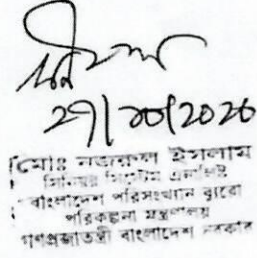 ২৭/১০/২০২০
মোঃ নজরুল ইসলাম
সিনিয়র সিস্টেম এনালিস্ট
বাংলাদেশ পরিসংখ্যান ব্যুরো
পরিকল্পনা মন্ত্রণালয়
গণপ্রজাতন্ত্রী বাংলাদেশ সরকার